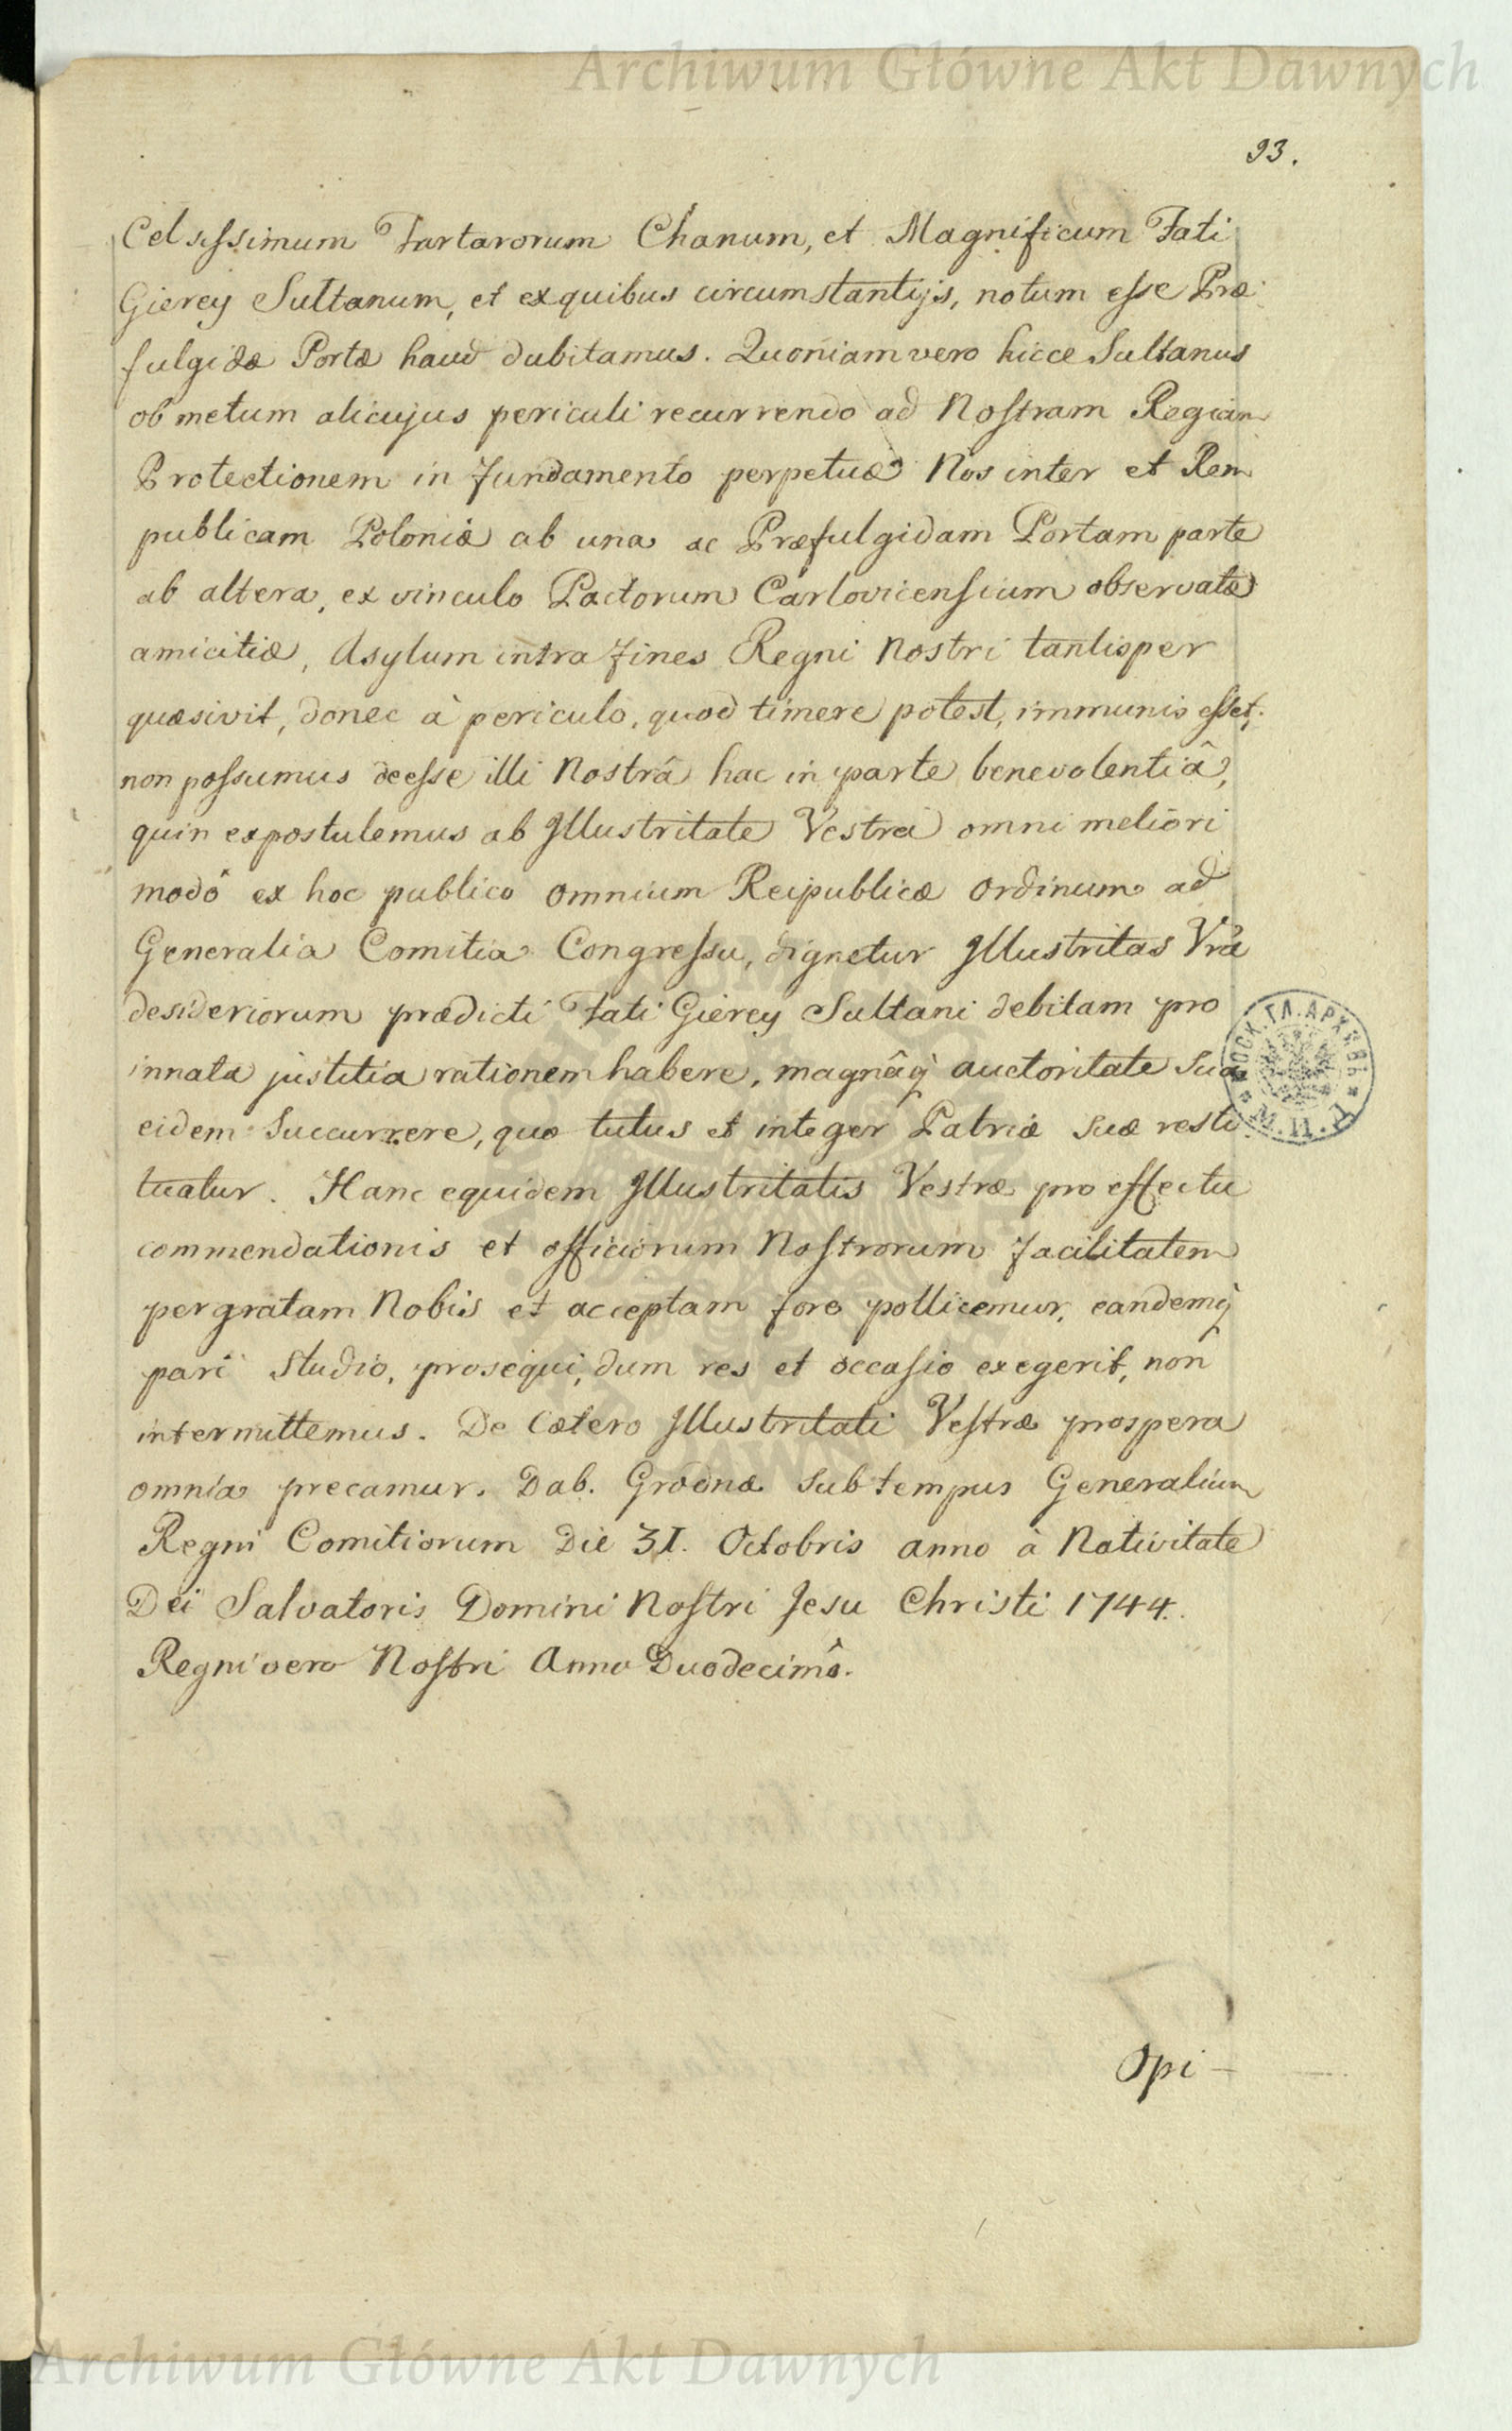 Archiwum Główne Akt Dawnych
93.
Celsissimum Tartarorum Chanum, et Magnificum Fati
Gierey Sultanum, et ex quibus circumstantijs, notum esse Præ
fulgidæ Portæ haud dubitamus. Quoniam vero hicce Sultanus
ob metum alicujus periculi recurrendo ad Nostram Regiam
Protectionem in fundamento perpetuæ Nos inter et Rem
publicam Poloniæ ab una ac Præfulgidam Portam parte
ab altera, ex vinculo Pactorum Carlovicensium observatæ
amicitiæ, Asylum intra fines Regni Nostri tantisper
quæsivit, donec à periculo, quod timere potest, immunis esset;
non possumus deesse illi Nostrâ hac in parte benevolentiâ,
quin expostulemus ab Illustritate Vestra omni meliori
modô ex hoc publico omnium Reipublicæ Ordinum ad
Generalia Comitia Congressu, dignetur Illustritas Vrã
desideriorum prædicti Fati Gierey Sultani debitam pro
innata justitia rationem habere, magnâq́ auctoritate Sua
eidem Succurrere, quo tutus et integer Patriæ suæ resti
tuatur. Hanc equidem Illustritatis Vestræ pro effectu
commendationis et officiorum Nostrorum facilitatem
pergratam Nobis et acceptam fore pollicemur, eandemq́
pari Studio, prosequi, dum res et occasio exegerit, non
intermittemus. De Cætero Illustritati Vestræ prospera
omnia precamur. Dab. Grodnæ Sub tempus Generalium
Regni Comitiorum Die 31. Octobris anno à Nativitate
Dei Salvatoris Domini Nostri Jesu Christi 1744.
Regni vero Nostri Anno Duodecimô.
Opi-
Archiwum Główne Akt Dawnych